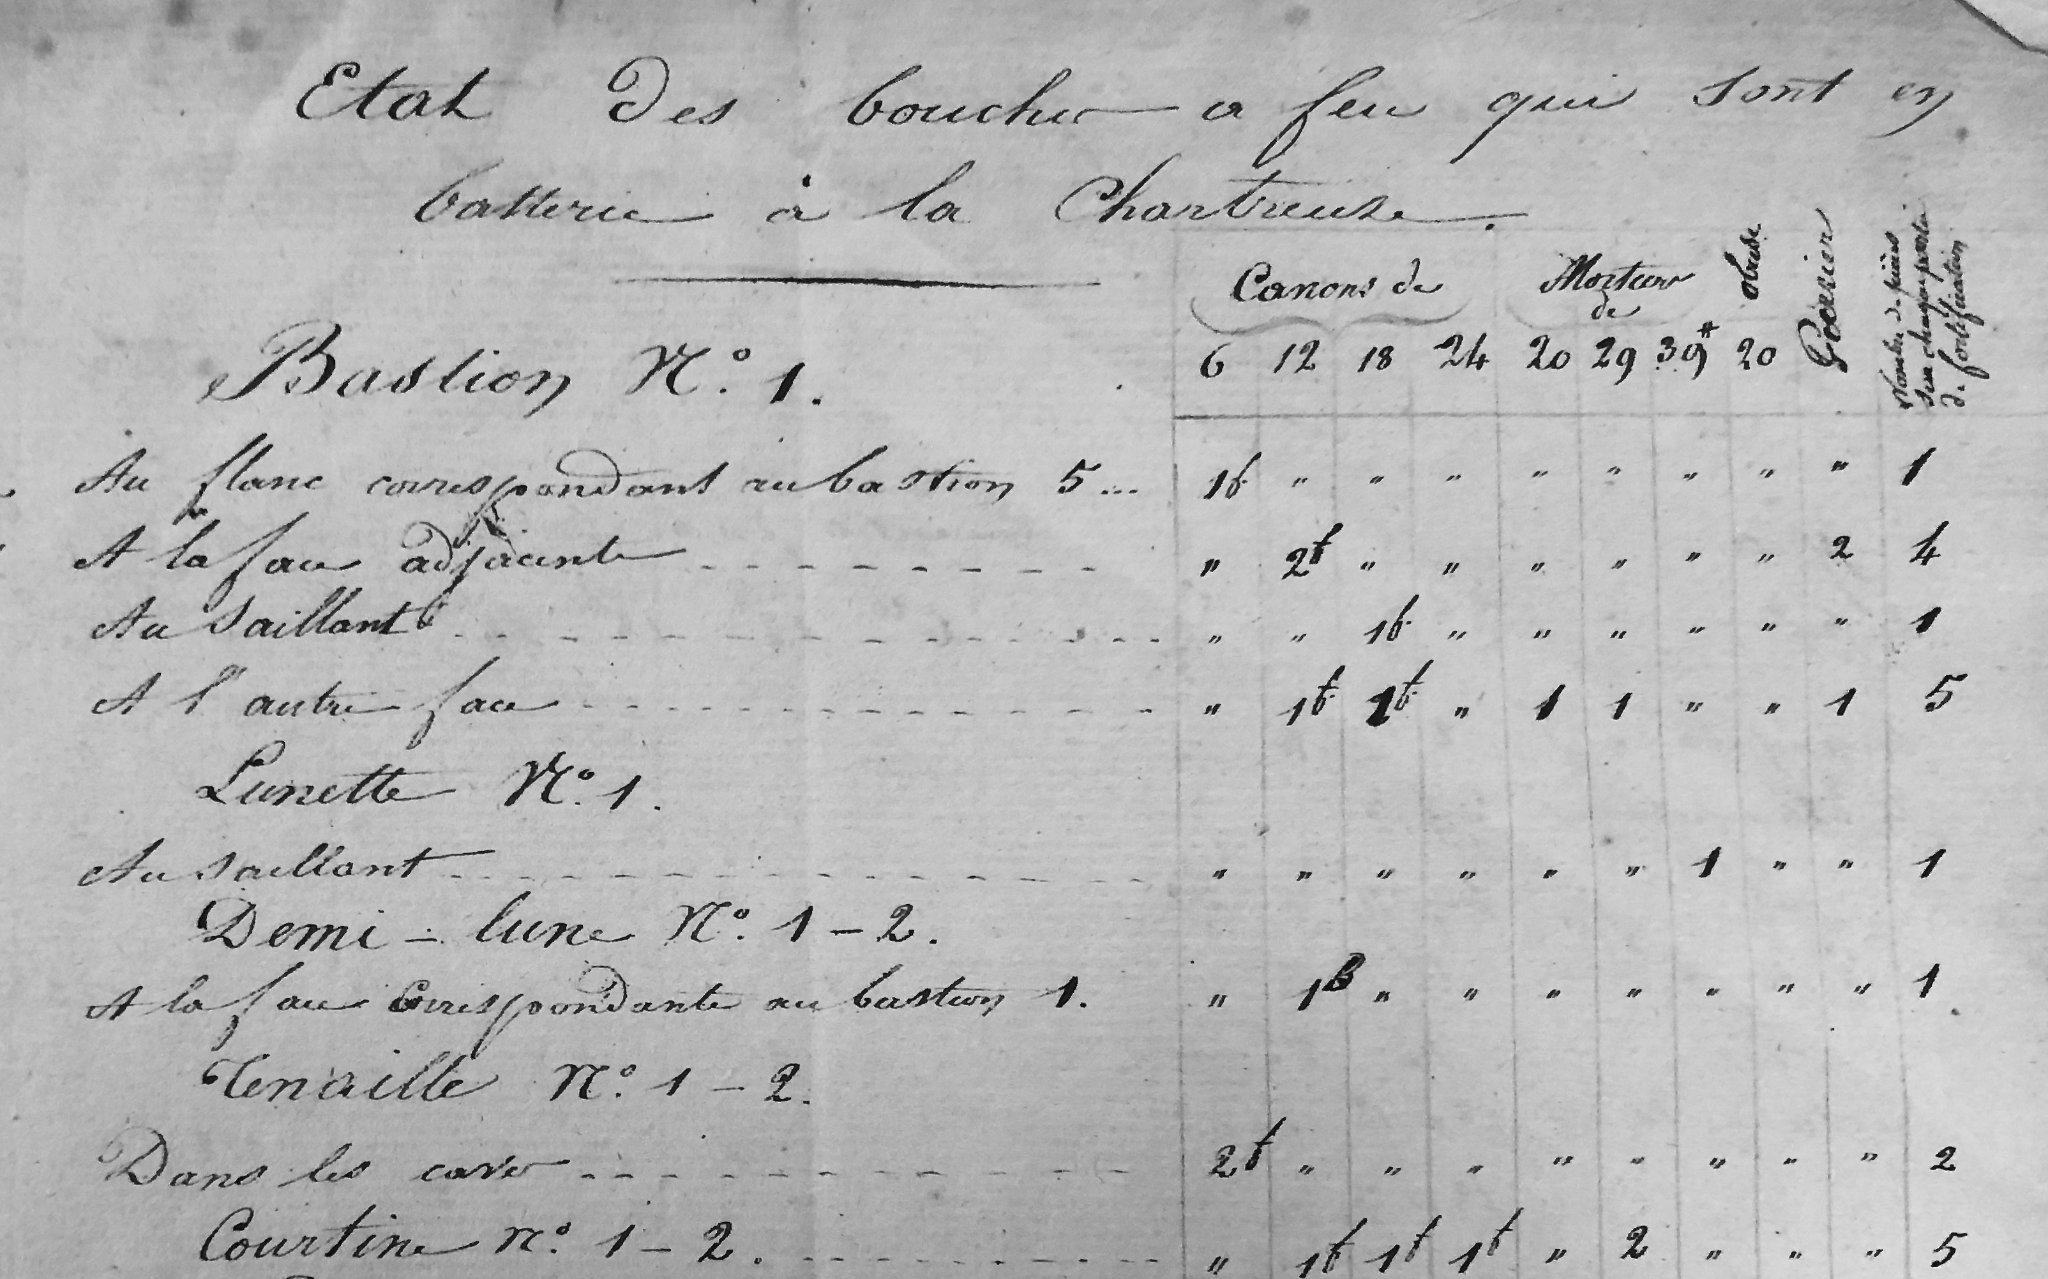 Etat des bouches a feu qui sont en
batterie à la Chartreuse.
Canons de Mortiers de obus Pierrier Nombre de pièces sur chaque partie de fortification
6 12 18 24 20 29 39 # 20
Bastion N.° 1.
Au flanc correspondant au bastion 5... 1b. " " " " " " " " 1
A la face adjacente - - - - - - - " 2 " " " " " " 2 4
Au Saillant - - - - - - - - - - " " 1b. " " " " " " 1
A l'autre face - - - - - - - - - " 1 1 " 1 1 " " 1 5
Lunette N.° 1.
Au saillant - - - - - - - - - - " " " " " " 1 " " 1
Demi-lune N.° 1-2.
A la face Correspondante au bastion 1. " 1B " " " " " " " 1
Tenaille N.° 1-2.
Dans les caves - - - - - - - - 2 " " " " " " " " 2
Courtine N.° 1-2. - - - - - - " 1 1 1 " 2 " " " 5